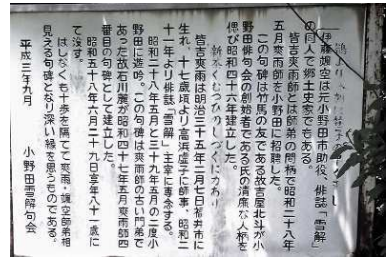 伊藤颯空は元小野田市助役、俳誌「雪解」
の同人で郷土史家でもある。
皆吉爽雨師とは師弟の間柄で昭和二十八年
五月爽雨師を小野田に招聘した。
この句碑は竹馬の友である故吉屋北斗が小
野田俳句会の創始者である氏の清廉な人柄を
偲び昭和四十六年建立した。
皆吉爽雨は明治三十五年二月七日福井市に
生れ、十七歳頃より高浜虚子に師事、昭和二
十一年より俳誌「雪解」主宰に専念する。
昭和二十八年五月と三十九年五月の二度小
野田に遊吟。この句碑は爽雨師の古い門弟で
あった故石川麗が昭和四十七年五月爽雨師四
番目の句碑として建立した。
昭和五十八年六月二十九日享年八十一歳に
て没す。
はしなくも十歩を隔てて爽雨・颯空師弟相
見える句碑となり深い縁を思うものである。
平成三年九月 小野田雪解句会